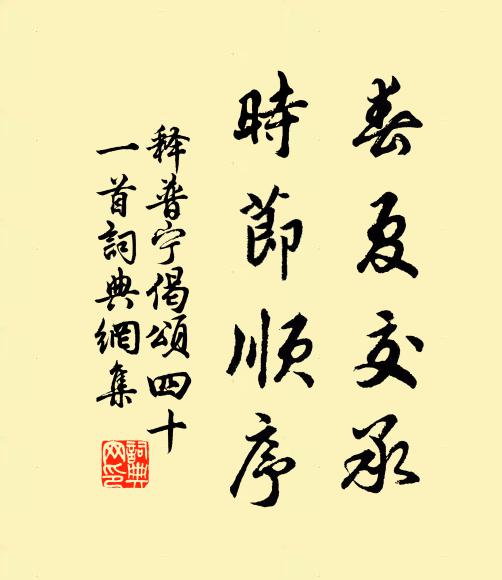 春夏交承
時節順序
释普宁偈頌四十
一首詞典網集
詞典
网印